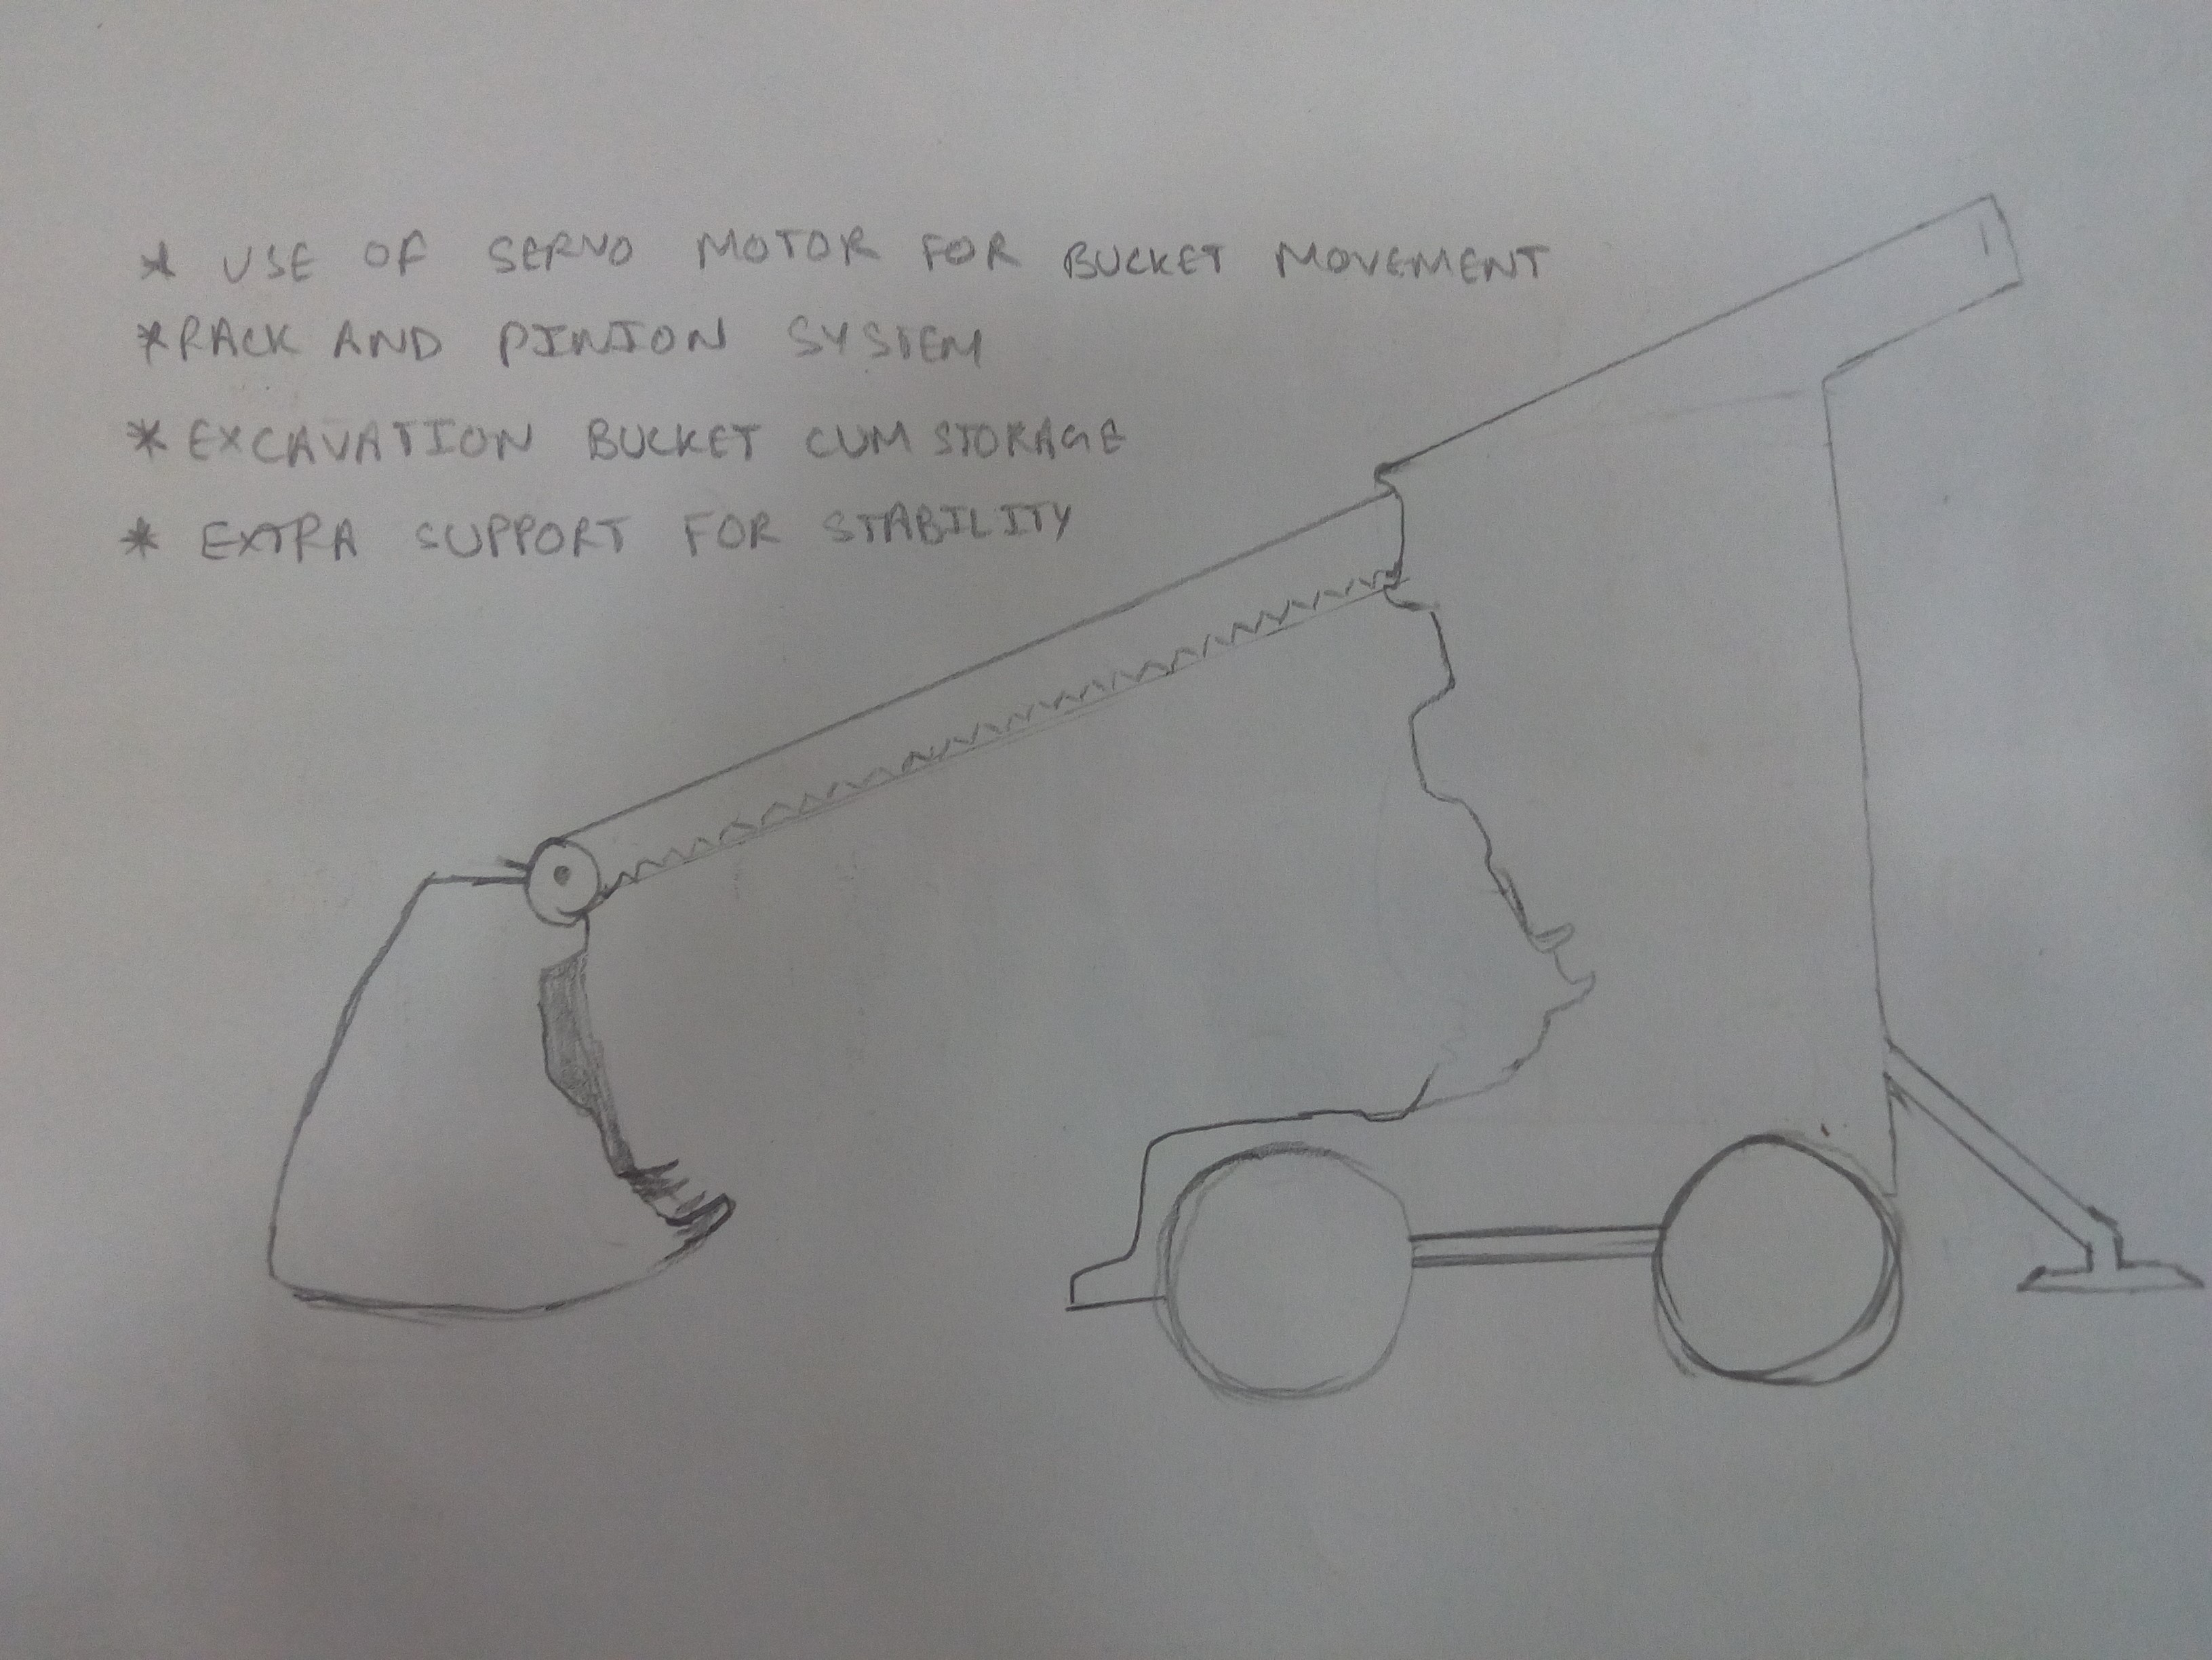 * USE OF SERVO MOTOR FOR BUCKET MOVEMENT
* RACK AND PINION SYSTEM
* EXCAVATION BUCKET CUM STORAGE
* EXTRA SUPPORT FOR STABILITY